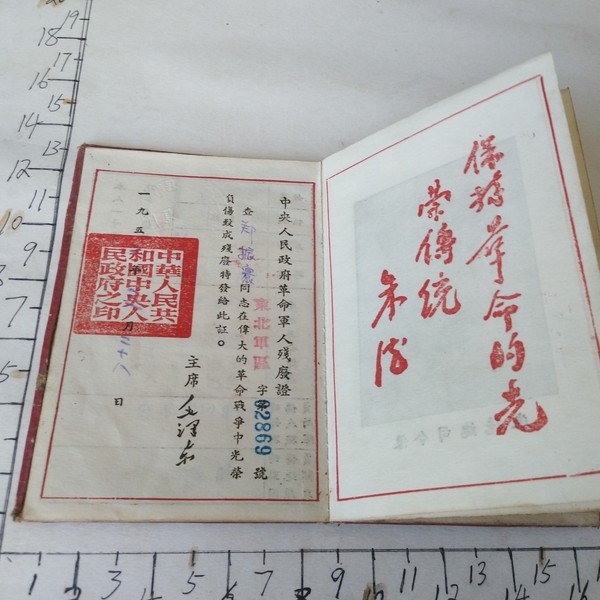 保持革命的光
榮傳統
朱德
中央人民政府革命軍人残廢證
東北軍區 字第62869號
查 同志在偉大的革命戰爭中光榮
負傷致成残廢特發給此証。
主席 毛澤東
一九五 月二十八日
中華人民共
和國中央人
民政府之印
19
18
17
16
15
14
13
12
11
10
9
8
7
5
1 3 5 7 9 11 13 15